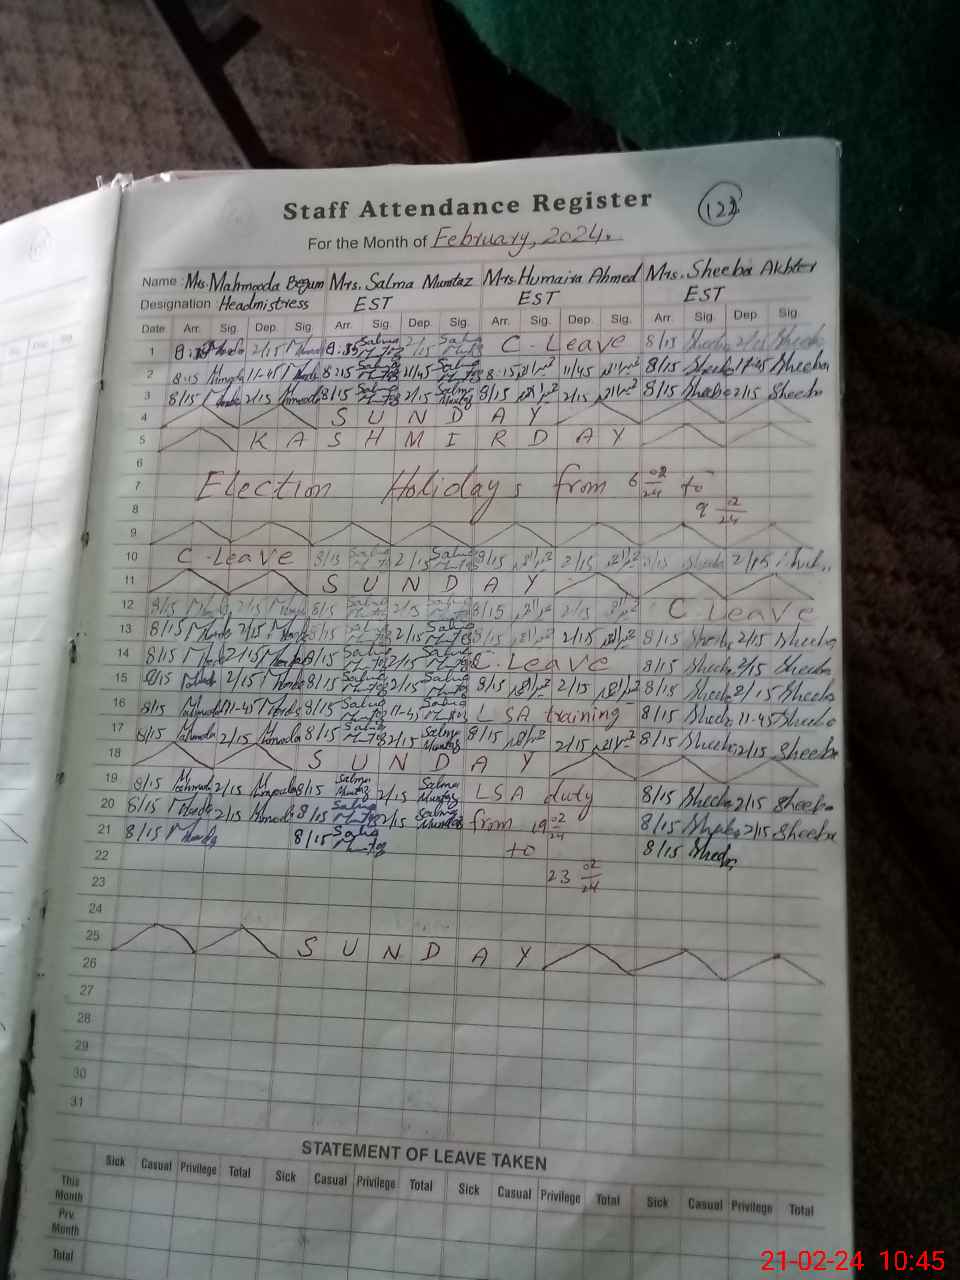 Staff Attendance Register
123
For the Month of February, 2024.
Name : Mrs. Mahmooda Begum Mrs. Salma Mumtaz Mrs. Humaira Ahmed Mrs. Sheeba Akhter
Designation : Headmistress EST EST EST
Date Arr. Sig. Dep. Sig Arr. Sig. Dep. Sig. Arr. Sig. Dep. Sig. Arr. Sig. Dep Sig.
1 2/15 8:35 Salma 2/15 Salma C. Leave 8/15 2/15 Sheeba
2 8:15 11-45 8:15 Salma 11/45 Salma 8:15 11/45 8/15 Sheeba 11-45 Sheeba
3 8/15 2/15 8/15 Salma 2/15 Salma Mumtaz 8/15 2/15 8/15 Sheeba 2/15 Sheeba
4 SUNDAY
5 KASHMIR DAY
6
7 Election Holidays from 6 02/24 to
8 9 02/24
9
10 C. Leave 8/15 Salma 2/15 Salma 8/15 2/15 8/15 Sheeba 2/15
11 SUNDAY
12 8/15 2/15 8/15 Salma 2/15 Salma 8/15 2/15 C. Leave
13 8/15 2/15 8/15 Salma 2/15 Salma 8/15 2/15 8/15 Sheeba 2/15 Sheeba
14 8/15 2/15 8/15 Salma 2/15 Salma C. Leave 8/15 Sheeba 2/15 Sheeba
15 8/15 2/15 8/15 Salma 2/15 Salma 8/15 2/15 8/15 Sheeba 2/15 Sheeba
16 8/15 11-45 8/15 Salma 11-45 Salma LSA training 8/15 Sheeba 11-45 Sheeba
17 8/15 2/15 8/15 Salma 2/15 Salma Mumtaz 8/15 2/15 8/15 Sheeba 2/15 Sheeba
18 SUNDAY
19 8/15 2/15 8/15 Salma Mumtaz 2/15 Salma Mumtaz LSA duty 8/15 Sheeba 2/15 Sheeba
20 8/15 2/15 8/15 Salma 2/15 Salma Mumtaz from 19 02/24 8/15 2/15 Sheeba
21 8/15 8/15 Salma to 8/15
22 23 02/24
23
24
25 SUNDAY
26
27
28
29
30
31
STATEMENT OF LEAVE TAKEN
Sick Casual Privilege Total Sick Casual Privilege Total Sick Casual Privilege Total Sick Casual Privilege Total
This Month
Prv. Month
Total
21-02-24 10:45